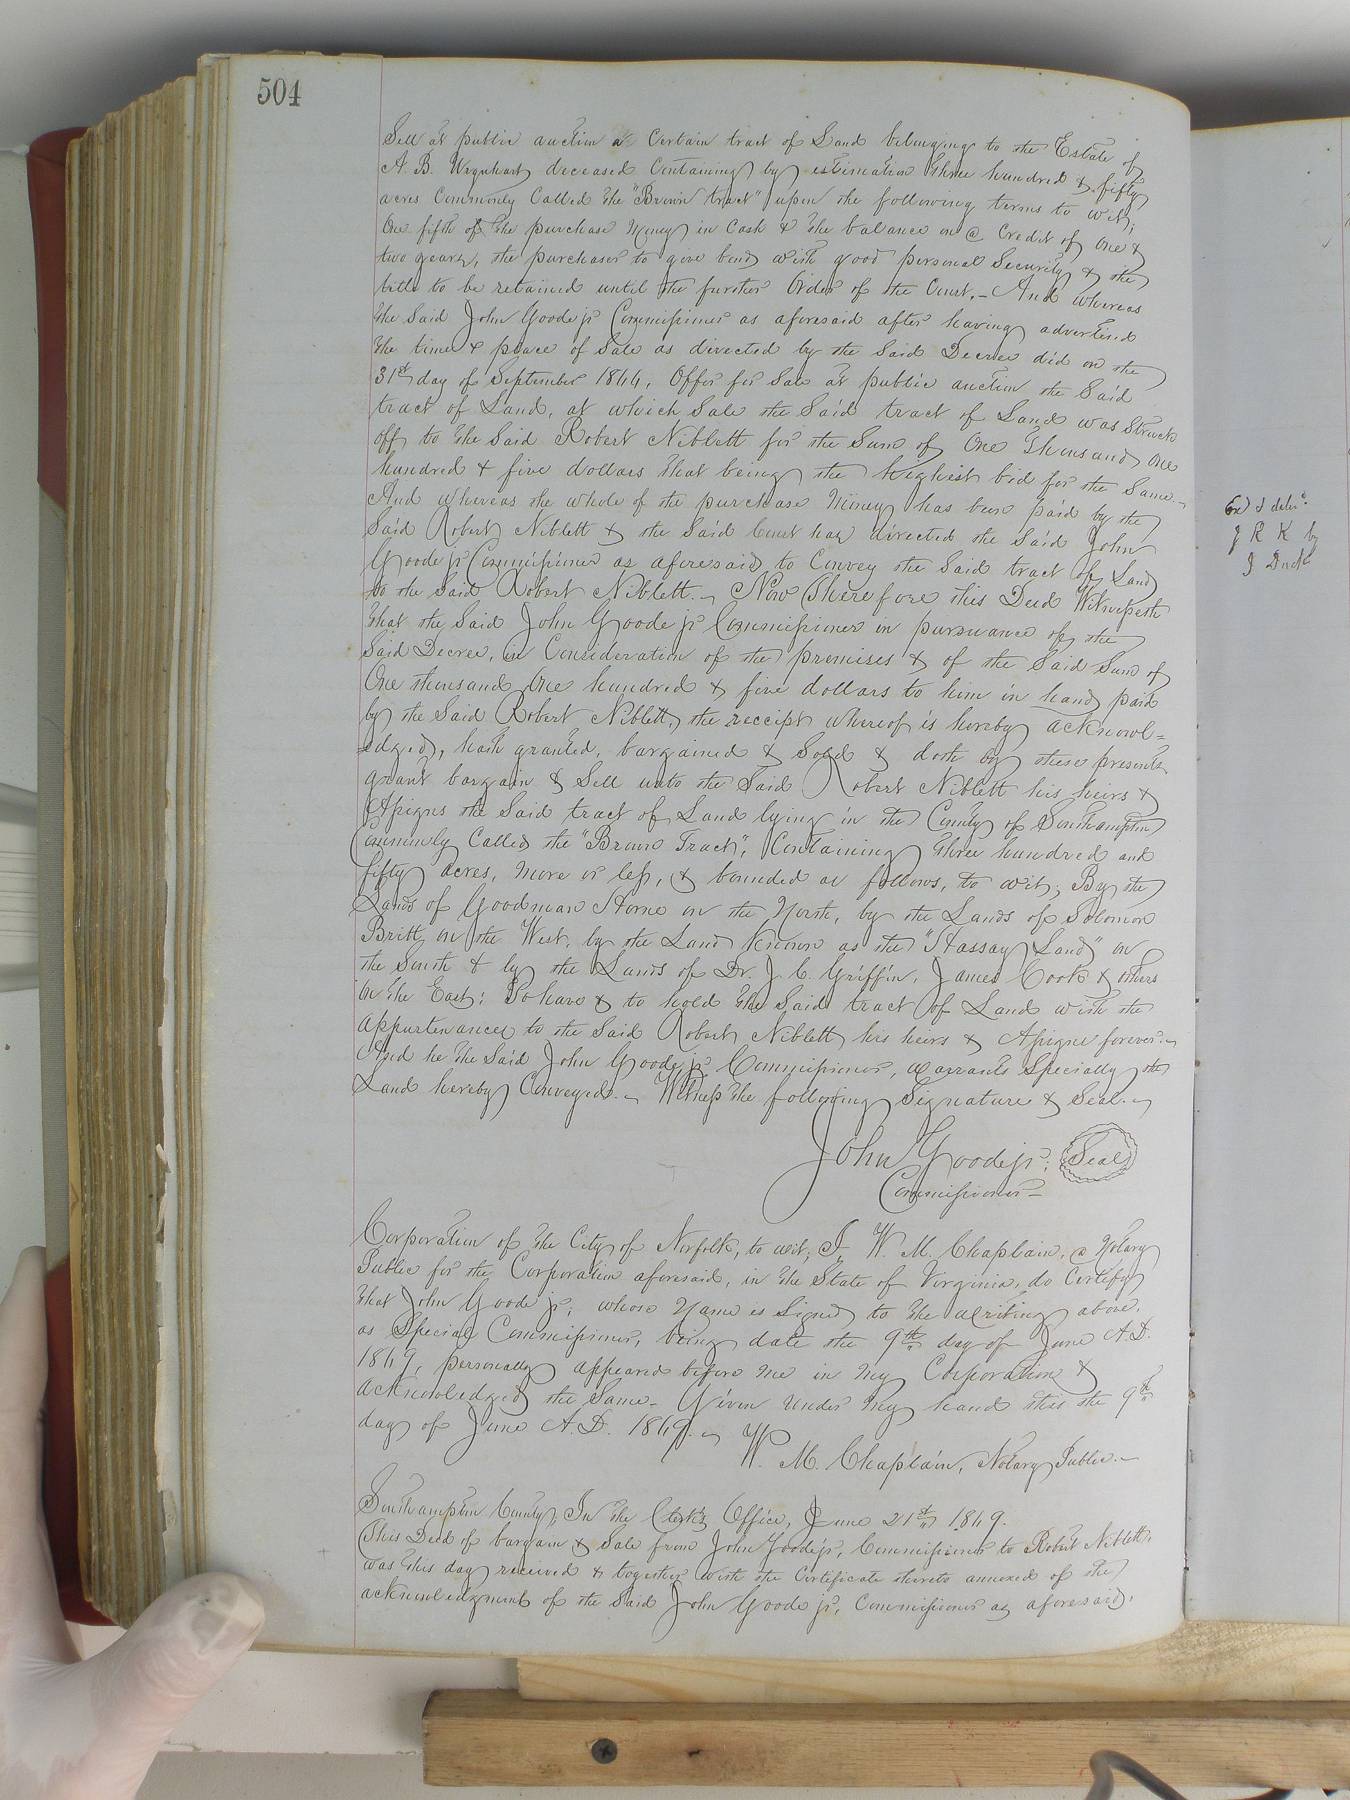 504
Sell at public auction a Certain tract of Land belonging to the Estate of
A. B. Urquhart deceased Containing by estimation three hundred & fifty
acres Commonly Called the "Brown tract" upon the following terms to wit;
One fifth of the purchase Money in Cash & the balance on @ Credit of one &
two years, the purchaser to give bond with good personal Security & the
title to be retained until the further Order of the Court,- And whereas
the Said John Goode jr Commissioner as aforesaid after having advertised
the time & place of Sale as directed by the Said Decree did on the
31st day of September 1844, Offer for Sale at public auction the Said
tract of Land, at which Sale the Said tract of Land was Struck
off to the Said Robert Niblett for the Sum of One Thousand One
hundred & five dollars that being the highest bid for the Same.-
And whereas the whole of the purchase Money has been paid by the
Said Robert Niblett & the Said Court has directed the Said John
Goode jr Commissioner as aforesaid to Convey the Said tract of Land
to the Said Robert Niblett.- Now Therefore this Deed Witnesseth
that the Said John Goode jr Commissioner in pursuance of the
Said Decree, in Consideration of the premises & of the Said Sum of
One thousand One hundred & five dollars to him in hand paid
by the Said Robert Niblett, the receipt whereof is hereby acknowl=
edged, hath granted, bargained & Sold & doth by these presents
grant bargain & Sell unto the Said Robert Niblett his heirs &
Assigns the Said tract of Land lying in the County of Southampton
Commonly Called the "Brown Tract", Containing three hundred and
fifty acres, more or less, & bounded as follows, to wit; By the
Lands of Goodman Horne on the North, by the Lands of Solomon
Britt on the West, by the Land known as the Land" on
the South & by the Lands of Dr. J. C. Griffin, James Cook & others
On the East; To have & to hold the Said tract of Land with the
appurtenances to the Said Robert Niblett his heirs & Assigns forever.-
And he the Said John Goode jr Commissioner, warrants Specially the
Land hereby Conveyed.- Witness the following Signature & Seal.-
John Goode jr. Seal
Commissioner-
Corporation of the City of Norfolk, to wit; I, W. M. Chaplain, a Notary
Public for the Corporation aforesaid, in the State of Virginia, do Certify
that John Goode jr; whose Name is Signed to the writing above,
as Special Commissioner, being date the 9th day of June A.D.
1849, personally appeared before me in my Corporation &
acknowledged the Same- Given under My hand this the 9th
day of June A.D. 1849.-
W. M. Chaplain, Notary Public.-
Southampton County, In the Clerk's Office, June 21st 1849.
This Deed of bargain & Sale from John Goode jr, Commissioner to Robert Niblett,
was this day received & together with the Certificate thereto annexed of the
acknowledgment of the Said John Goode jr. Commissioner as aforesaid,
Exd & deliv:d
J R K by